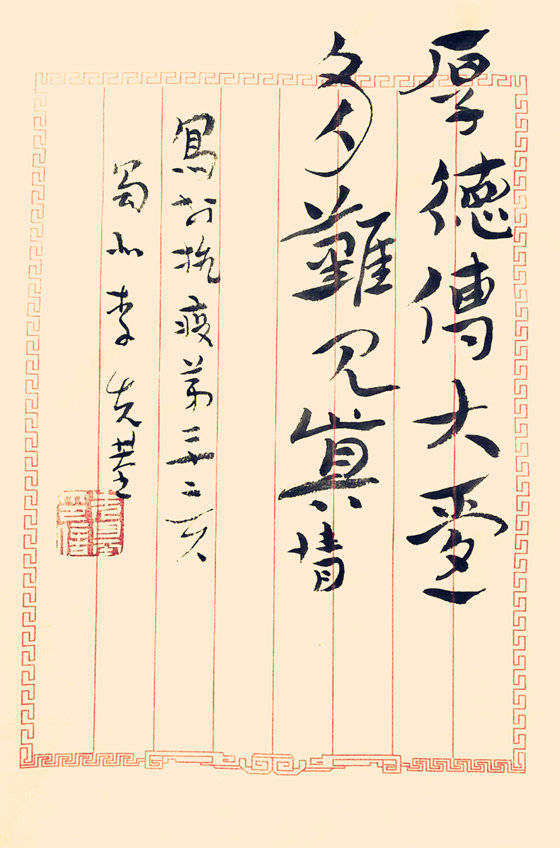 厚德傳大愛
多難見真情
寫於抗疫第三十二天
蜀北李先基